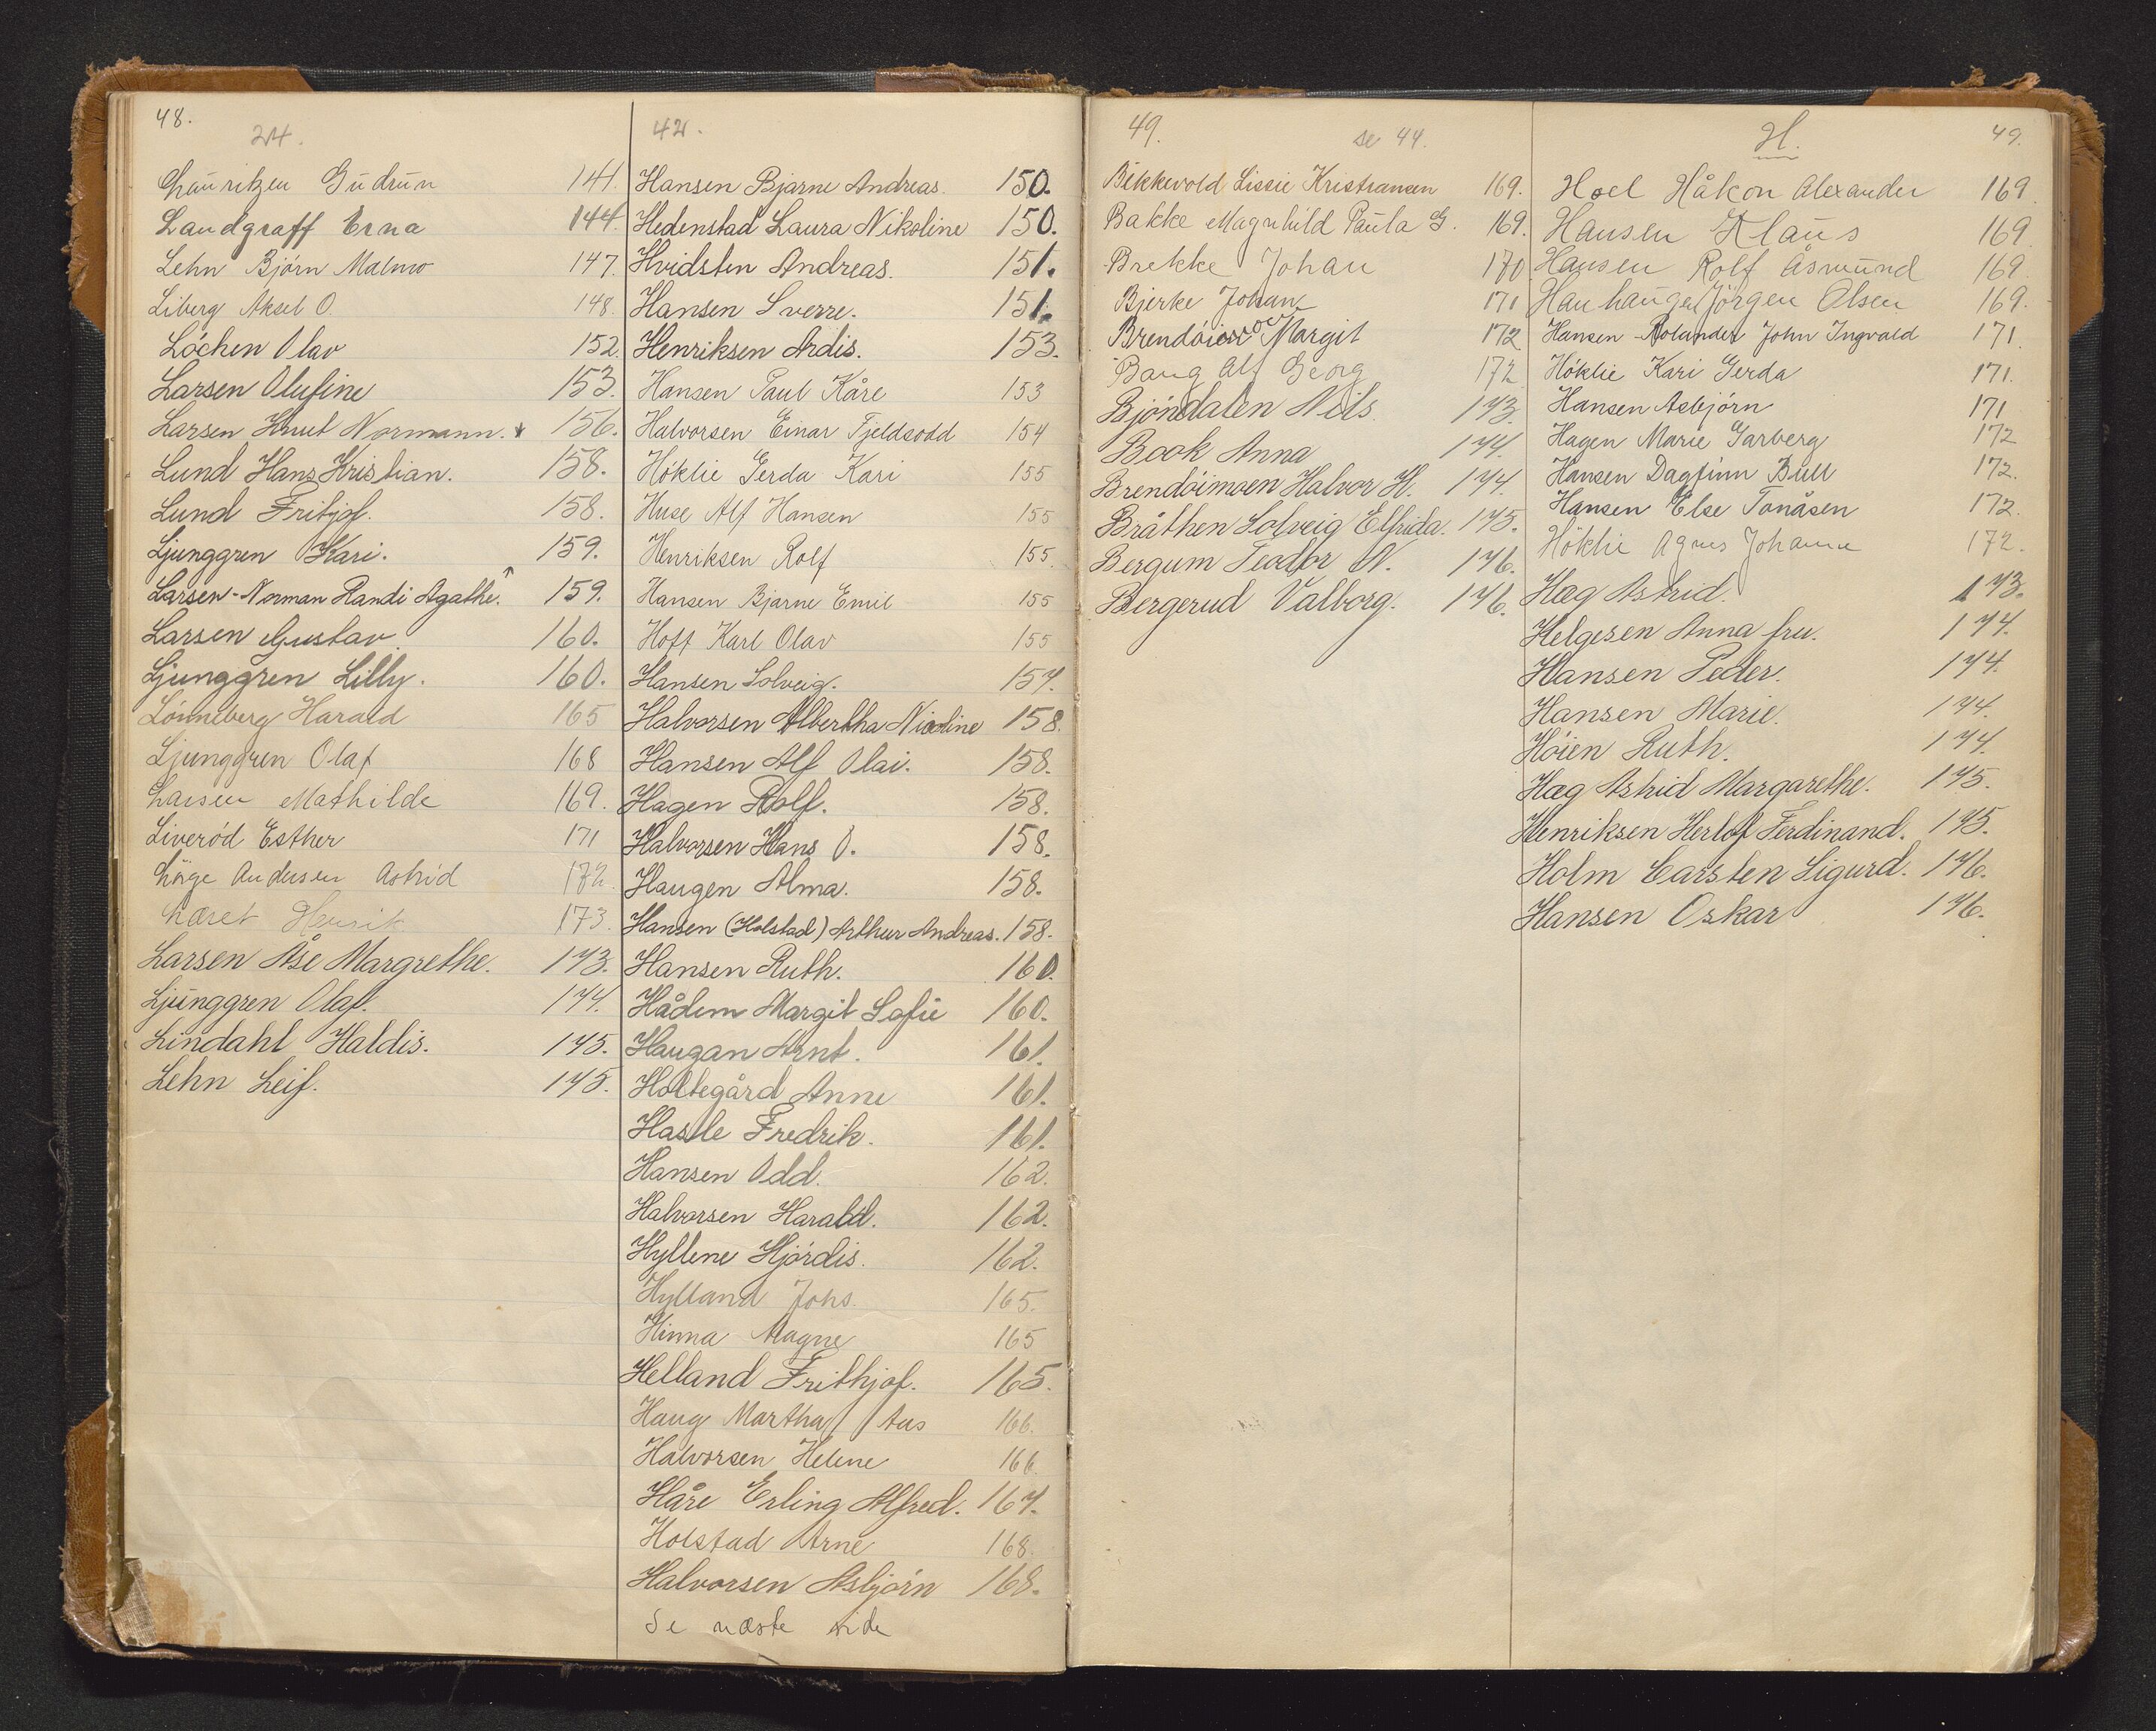 48.
24.
Lauritzen Gudrun 141.
Landgraff Erna 144.
Lehn Bjørn Malmo 147.
Liberg Aksel O. 148.
Löchen Olav 152.
Larsen Olufine 153.
Larsen Knut Normann. 156.
Lund Hans Kristian. 158.
Lund Fritjof. 158.
Ljunggren Kari. 159.
Larsen-Norman Randi Agathe. 159.
Larsen Gustav 160.
Ljunggren Lilly. 160.
Lönneberg Harald 165
Ljunggren Olaf 168
Larsen Mathilde 169.
Liveröd Esther 171
Andersen Astrid 172.
Henrik 173.
Larsen Åse Margrethe. 173.
Ljunggren Olaf. 174.
Lindahl Haldis. 175.
Lehn Leif. 175.
42.
Hansen Bjarne Andreas. 150.
Hedenstad Laura Nikoline 150.
Hvidsten Andreas. 151.
Hansen Sverre. 151.
Henriksen Ardis. 153.
Hansen Paul Kåre 153
Halvorsen Einar Fjeldsodd 154
Höklie Gerda Kari 155
Huse Alf Hansen 155
Henriksen Rolf 155.
Hansen Bjarne Emil 155
Hoff Karl Olav 155
Hansen Solveig. 157.
Halvorsen Albertha Nicoline 158.
Hansen Alf Olai. 158.
Hagen Rolf. 158.
Halvorsen Hans O. 158.
Haugen Alma. 158.
Hansen (Holstad) Arthur Andreas. 158.
Hansen Ruth. 160.
Hådem Margit Sofie 160.
Haugan Arnt. 161.
Holtegård Anne 161.
Hasle Fredrik. 161.
Hansen Odd. 162.
Halvorsen Harald. 162.
Hyllene Hjördis. 162.
Hylland Johs. 165.
Hinna Magne 165
Helland Frithjof. 165.
Haug Martha Aus 166.
Halvorsen Helene 166.
Håre Erling Alfred. 167.
Holstad Arne 168.
Halvorsen Asbjörn 168.
Se næste side
49.
se 44.
Bekkevold Lissie Kristiansen 169.
Bakke Magnhild Paula G. 169.
Brekke Johan 170
Bjerke Johan 171
Brendöimoen Margit 172
Bang Alf Georg 172
Bjöndalen Nils. 173.
Book Anna 174.
Brendöimoen Halvor H. 174.
Bråthen Solveig Elfrida. 175.
Bergum Teodor N. 176.
Bergerud Valborg. 176.
H.
49.
Hoel Håkon Alexander 169
Hansen Klaus 169
Hansen Rolf Åsmund 169.
Hanhaugen Jörgen Olsen 169.
Hansen Rolander John Ingvald 171.
Höklie Kari Gerda 171.
Hansen Asbjörn 171
Hagen Marie Garberg 172
Hansen Dagfinn Bull 172.
Hansen Else Tonåsen 172.
Höklie Agnes Johanne 172.
Hæg Astrid. 173.
Helgesen Anna fru. 174.
Hansen Peder. 174.
Hansen Marie. 174.
Höien Ruth. 174.
Hæg Astrid Margarethe. 175.
Henriksen Herlof Ferdinand. 175.
Holm Carsten Sigurd. 176.
Hansen Oskar 176.